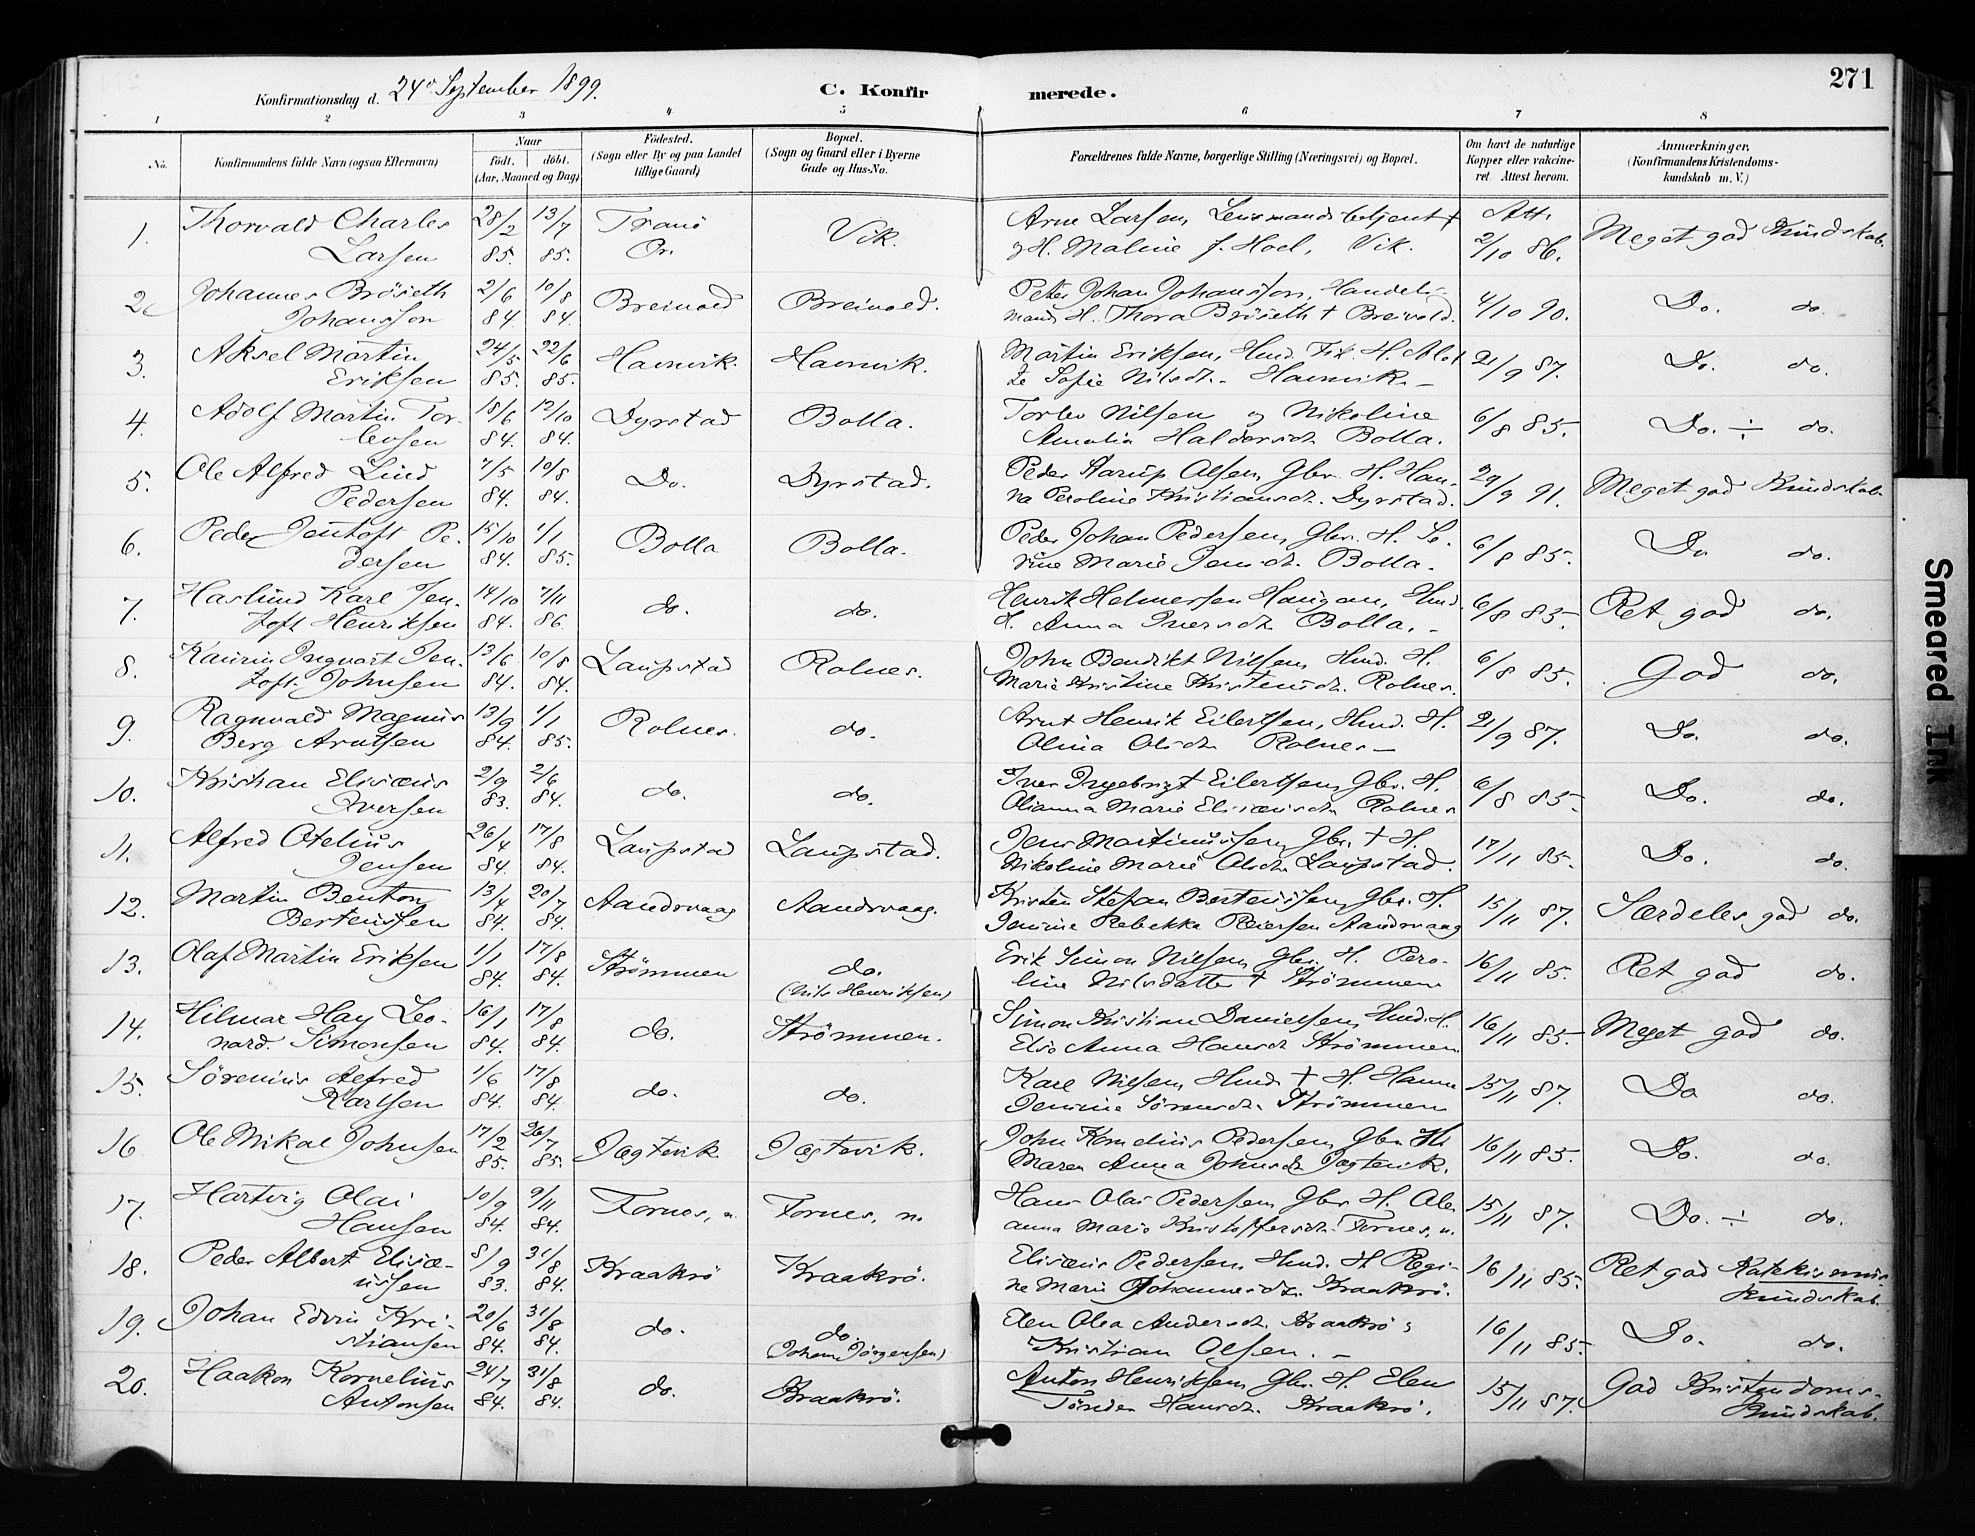 Konfirmationsdag d. 24de September 1899.
C. Konfirmerede.
271
1 2 3 4 5 6 7 8
No.
Konfirmandens fulde Navn (ogsaa Efternavn)
Naar
født. døbt.
(Aar, Maaned og Dag)
Fødested.
(Sogn eller By og paa Landet
tillige Gaard)
Bopæl.
(Sogn og Gaard eller i Byerne
Gade og Hus-No.
Forældrenes fulde Navne, borgerlige Stilling (Næringsvei) og Bopæl.
Om havt de naturlige
Kopper eller vakcine-
ret. Attest herom.
Anmærkninger,
(Konfirmandens Kristendoms-
kundskab m. V.)
1. Thorvald Charles 28/2 13/7 Tranö Vik. Arne Larsen, Lensmandsbetjent + Att. Meget god Kundskab.
Larsen 85. 85. Or. og H. Maline f. Hoel, Vik. 2/10 86.
2. Johannes Bröseth 2/6 10/8 Breivold Breivold. Peter Johan Johansson, Handels- 4/10 90. Do. do.
Johansson 84. 84. mand H. Thora Bröseth + Breivold.
3. Aksel Martin 24/5 22/6 Havnvik. Havnvik. Martin Eriksen, Hmd. Fik. H. 21/9 87. Do. do.
Eriksen 85. 85. Sofie Nilsdt. Havnvik. –
4. Adolf Martin Tor- 18/6 12/10 Dyrstad Bolla. Torlev Nilsen og Nikoline 6/8 85. Do. ÷ do.
levsen 84. 84. Amalia Haldorsdt. Bolla.
5. Ole Alfred Lind 7/5 10/8 Do. Dyrstad. Peder Aarup Olsen, Gbr. H. Han- 29/9 91. Meget god Kundskab
Pedersen 84. 84. na Peroline Kristiansdt. Dyrstad.
6. Peder Jentoft Pe- 15/10 1/1 Bolla Bolla. Peder Johan Pedersen, Gbr. H. Se- 6/8 85. Do do.
dersen 84. 85. rine Marie Jensdt. Bolla.
7. Haslund Karl Jen- 14/10 7/11 do. do. Henrik Helmersen Haugan, Hmd. 6/8 85. Ret god do.
toft Henriksen 84. 86. H. Anna Iversdt. Bolla. –
8. Kaurin Ingvart Jen- 13/6 10/8 Laupstad Rolnes. John Bendikt Nilsen, Hmd. H. 6/8 85. God do.
toft Johnsen 84. 84. Marie Kristine Kristensdt. Rolnes.
9. Ragnvald Magnus 13/9 1/1 Rolnes. do. Arnt Henrik Eilertsen, Hmd. H. 21/9 87. Do. do.
Berg Arntsen 84. 85. Olina Olsdt. Rolnes –
10. Kristian Elisæus 2/9 2/6 do. do. Iver Ingebrigt Eilertsen, Gbr. H. 6/8 85. Do. do.
Iversen 83. 84. Olianna Marie Elisæusdt. Rolnes
11. Alfred Otelius 26/4 17/8 Laupstad Laupstad. Jens Martinussen, Gbr. + H. 17/11 85. Do. do.
Jensen 84. 84. Nikoline Marie Olsdt. Laupstad.
12. Martin Benton 13/4 20/7 Aandsvaag Aandsvaag. Kristen Stefan Berteussen, Gbr. H. 15/11 87. Særdeles god do.
Berteussen 84. 84. Jensine Rebekka Reiersen Aandsvaag
13. Olaf Martin Eriksen 1/1 17/8 Strömmen do. Erik Simon Nilsen, Gbr. H. Pero- 16/11 85. Ret god do.
84. 84. (Nils Henriksen) line Nilsdatter + Strömmen
14. Hilmar Hay Leo- 16/1 17/8 do. Strömmen. Simon Kristian Danielsen, Hmd. H. 16/11 85. Meget god do.
nard Simonsen 84. 84. Elie Anna Hansdt. Strömmen
15. Sörenius Alfred 1/6 17/8 do. do. Karl Nilsen, Hmd. + H. Hanna 15/11 87. Do do.
Karlsen 84. 84. Jensine Sörensdt. Strömmen
16 Ole Mikal Johnsen 17/2 26/7 Jægtevik Jægtevik. John Kornelius Pedersen, Gbr H. 16/11 85. Do. do.
85. 85. Maren Anna Johnsdt. Jægtevik.
17. Hartvig Olai 10/9 9/11 Fornes, n. Fornes, n. Hans Olai Pedersen, Gbr. H. Ole- 15/11 87. Do. ÷ do.
Hansen 84. 84. anna Marie Kristoffersdt. Fornes, n.
18. Peder Albert Elisæ- 8/9 31/8 Kraakrö Kraakrö. Elisæus Pedersen, Hmd. H. Regi- 16/11 85. Ret god Katekismus
ussen 83. 84. ne Marie Johannesdt. Kraakrö. Kundskab.
19. Johan Edvin Kri- 20/6 31/8 do. do. Elen Olea Andersdt. Kraakrö; 16/11 85. Do. do.
stiansen 84. 84. (Johan Jörgensen) Kristian Olsen. –
20. Haakon Kornelius 24/7 31/8 do. Kraakrö. Anton Henriksen, Gbr. H. Elen 15/11 87. God Kristendoms-
Antonsen 84. 84. Hansdt. Kraakrö. Kundskab.
Smeared Ink